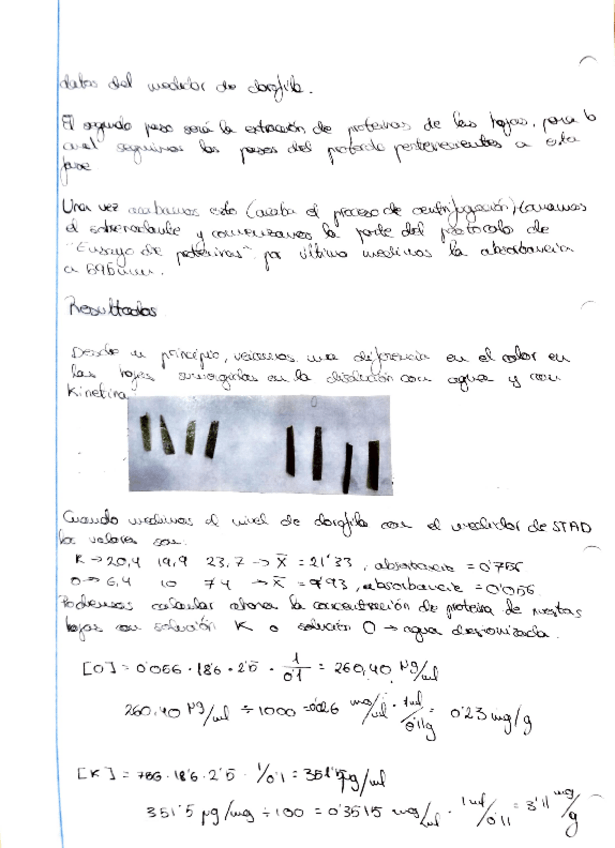 datos del medidor de clorofila.
El segundo paso será la extracción de proteínas de las hojas, para lo
cual seguimos los pasos del protocolo pertenecientes a esta
fase
Una vez acabamos esto (acaba el proceso de centrifugación)
el sobrenadante y comenzamos la parte del protocolo de
"Ensayo de proteínas" por último medimos la absorbancia
a 595mm.
Resultados
Desde un principio, veíamos una diferencia en el color en
las hojas sumergidas en la disolución con agua y con
Kinetina
Cuando medimos el nivel de clorofila con el medidor de STAD
los valores son:
K → 20,4 19,9 23,7 → X̄ = 21'33, absorbancia = 0'756
0 → 6,4 10 7,4 → X̄ = 7'93, absorbancia = 0'056
Podemos calcular ahora la concentración de proteína de nuestras
hojas en solución K o solución O → agua desionizada.
[O] = 0'056 · 186 · 2'5 · 1/0'1 = 260,40 µg/ml
260,40 µg/ml ÷ 1000 = 0'26 mg/ml · 1ml/0'11g = 0'23 mg/g
[K] = 756 · 18'6 · 2'5 · 1/0'1 = 351'5 µg/ml
351'5 µg/mg ÷ 100 = 0'3515 mg/ml · 1ml/0'11 = 3'11 mg/g